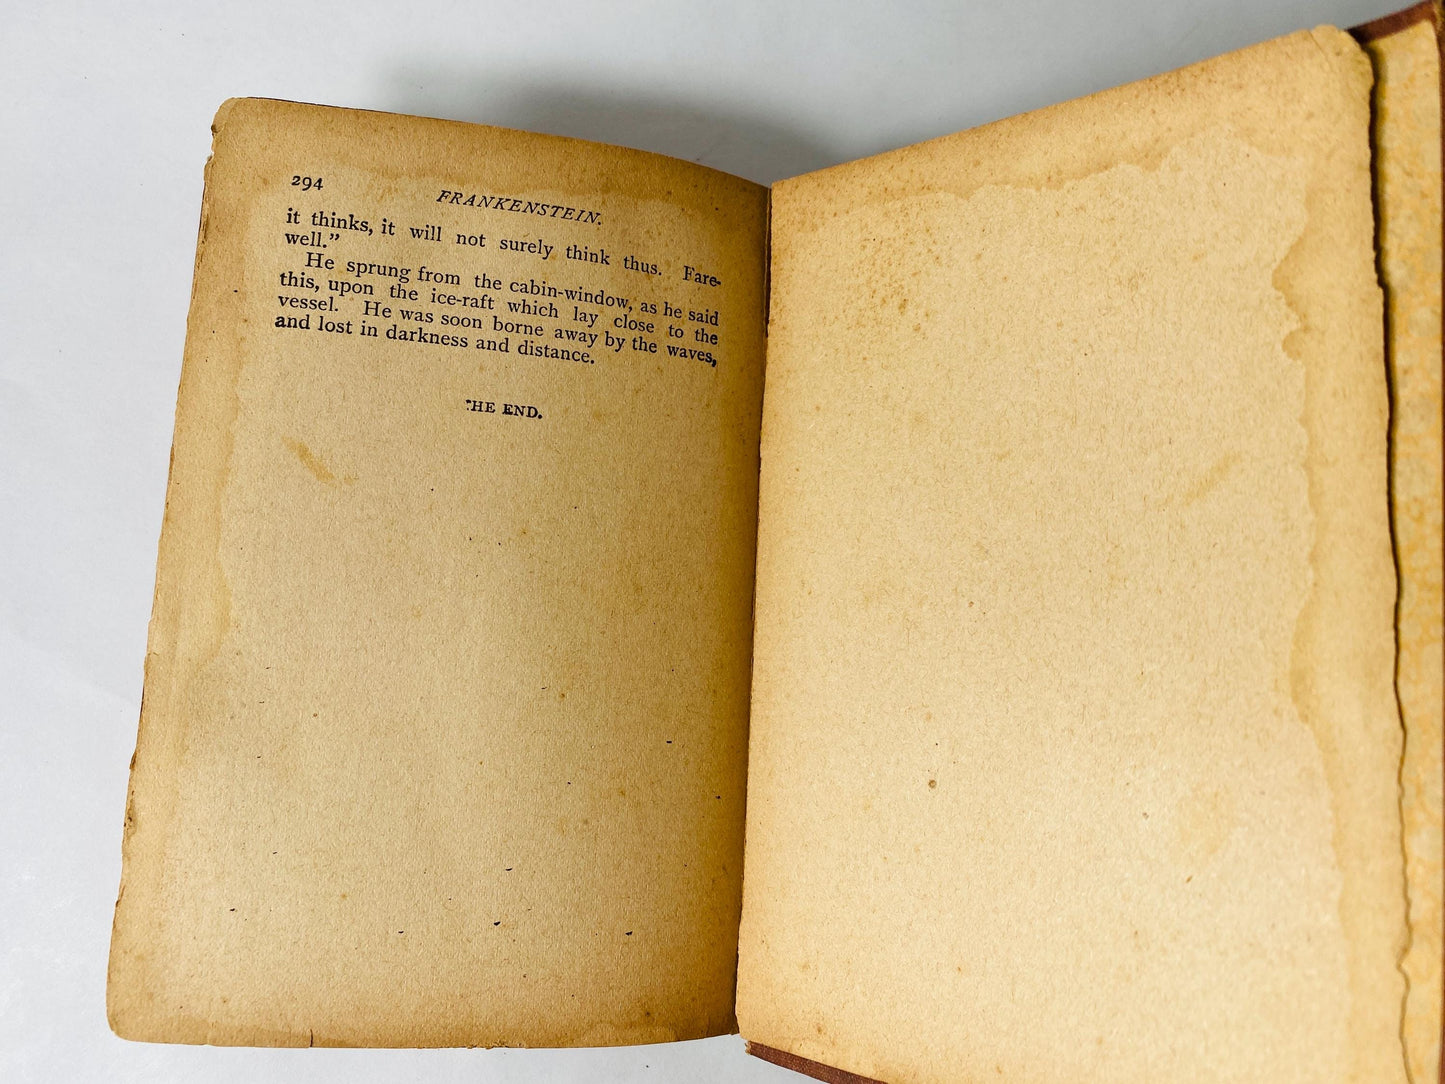 294
FRANKENSTEIN.
it thinks, it will not surely think thus. Fare-
well.”
He sprung from the cabin-window, as he said
this, upon the ice-raft which lay close to the
vessel. He was soon borne away by the waves,
and lost in darkness and distance.
THE END.